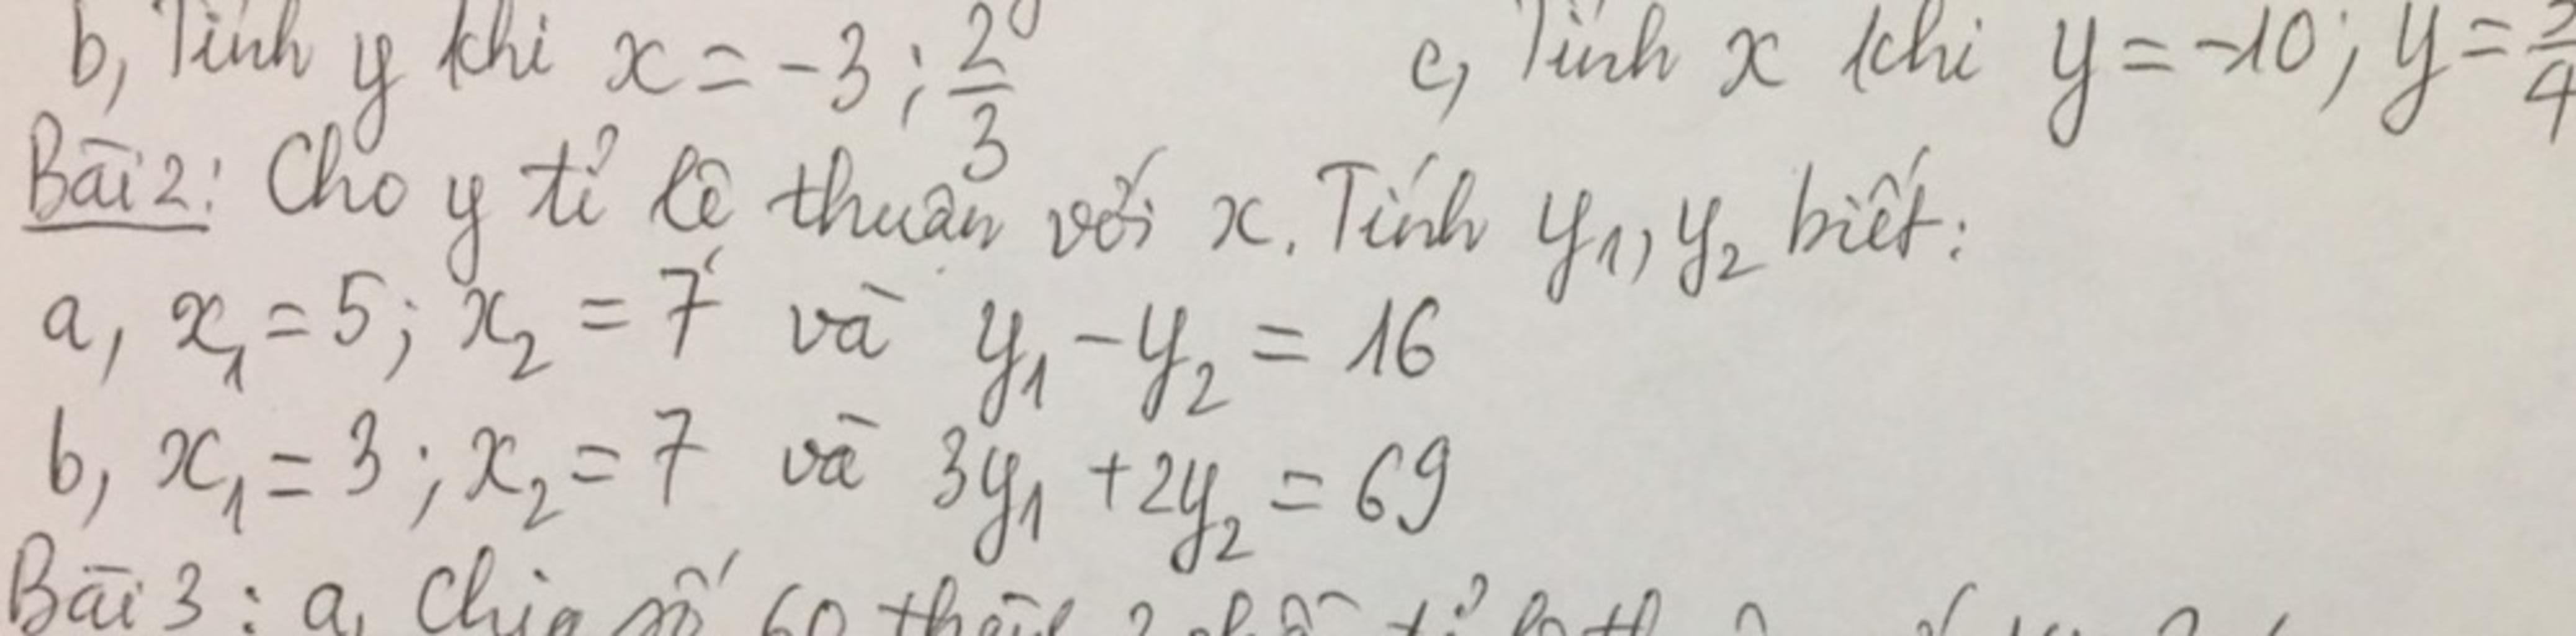 b, Tính y khi x = -3; 2/3 c, Tính x khi y = -10; y = 3/4
Bài 2: Cho y tỉ lệ thuận với x. Tính y₁, y₂ biết:
a, x₁ = 5; x₂ = 7 và y₁ - y₂ = 16
b, x₁ = 3; x₂ = 7 và 3y₁ + 2y₂ = 69
Bài 3: a, Chia số 60